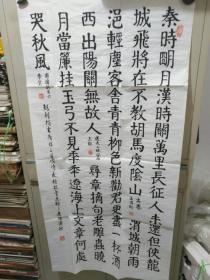 秦時明月漢時關萬里長征人未還但使龍
城飛將在不教胡馬度陰山
渭城朝雨
浥輕塵客舍青青柳色新勸君更盡一杯酒
西出陽關無故人
尋章摘句老雕蟲曉
月當簾挂玉弓不見年年遼海上文章何處
哭秋風